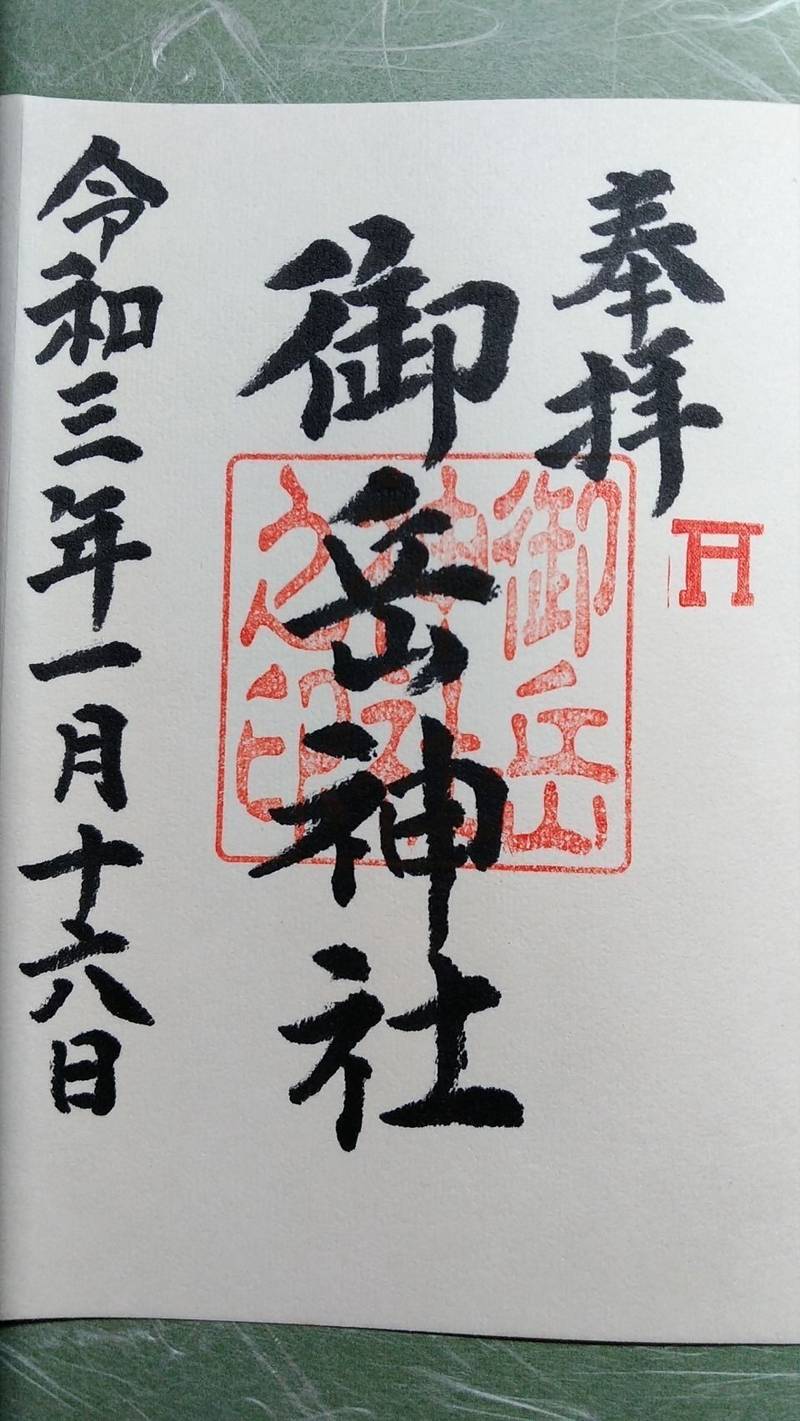 奉拝
御岳神社
御岳神社之印
令和三年一月十六日